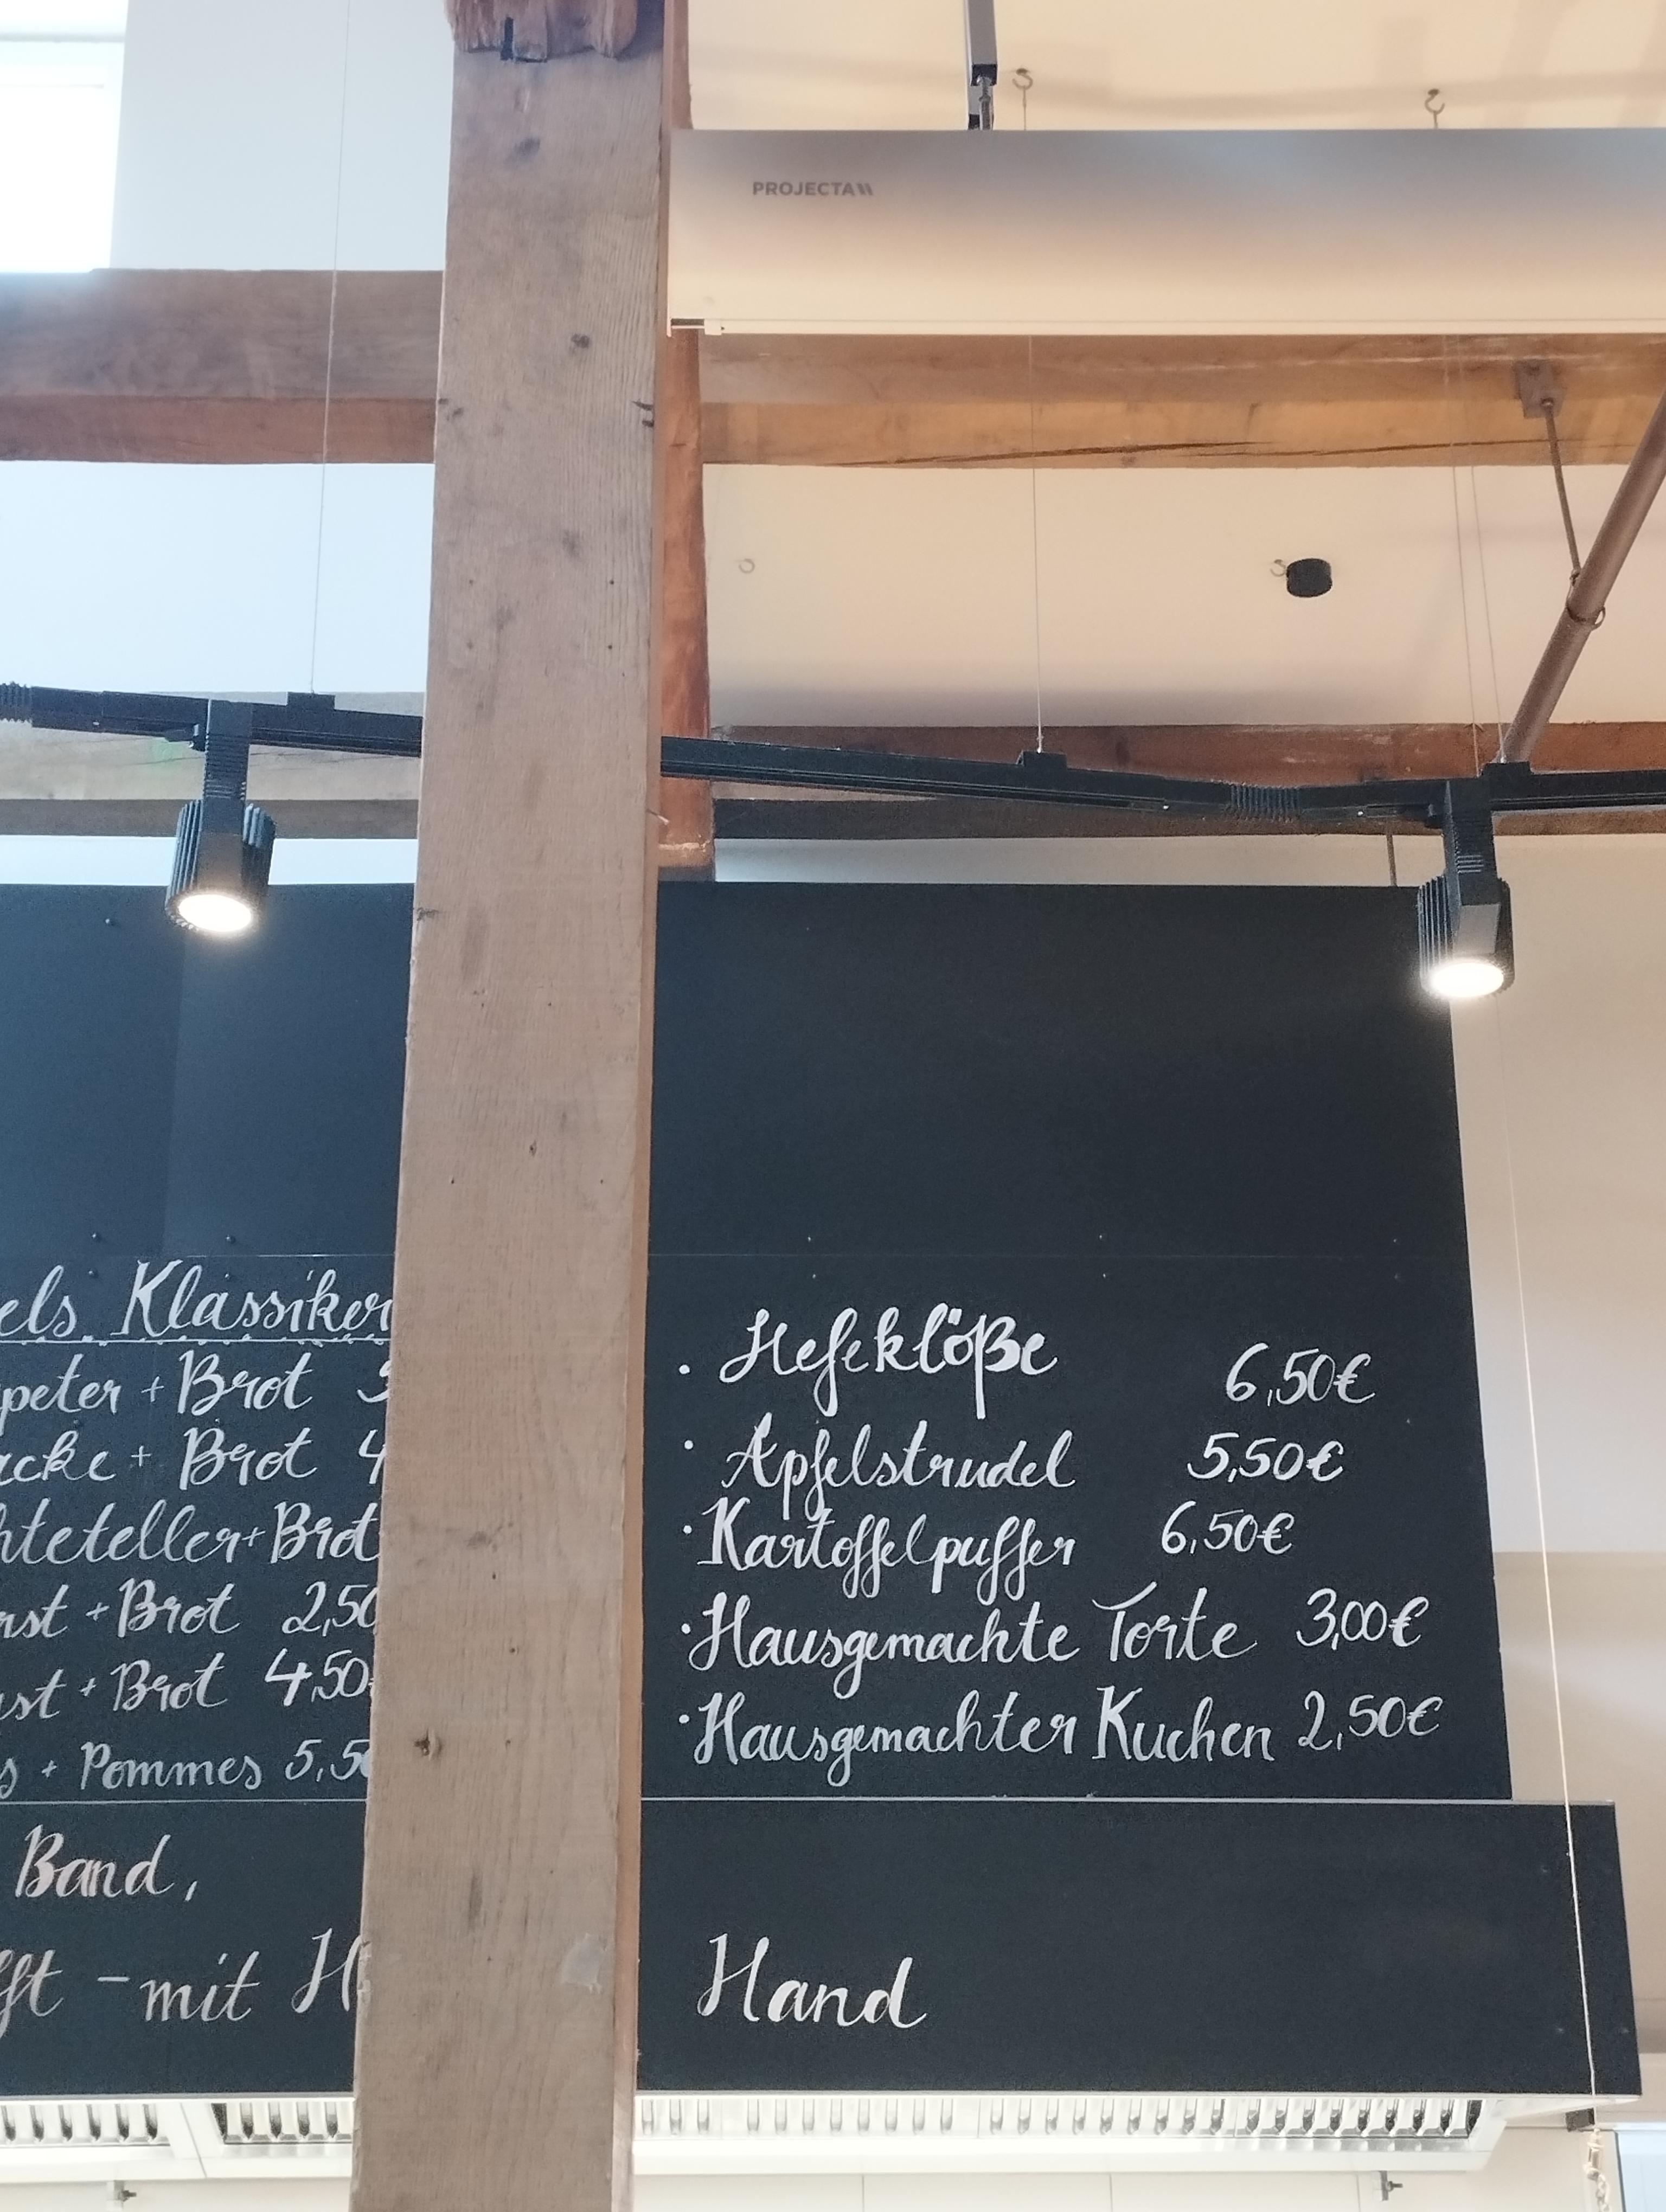 PROJECTA
Klassiker
+ Brot
+ Brot
+ Brot
+ Brot 2,50
+ Brot 4,50
+ Pommes
Hefeklöße 6,50€
Apfelstrudel 5,50€
Kartoffelpuffer 6,50€
Hausgemachte Torte 3,00€
Hausgemachter Kuchen 2,50€
Band,
- mit
Hand